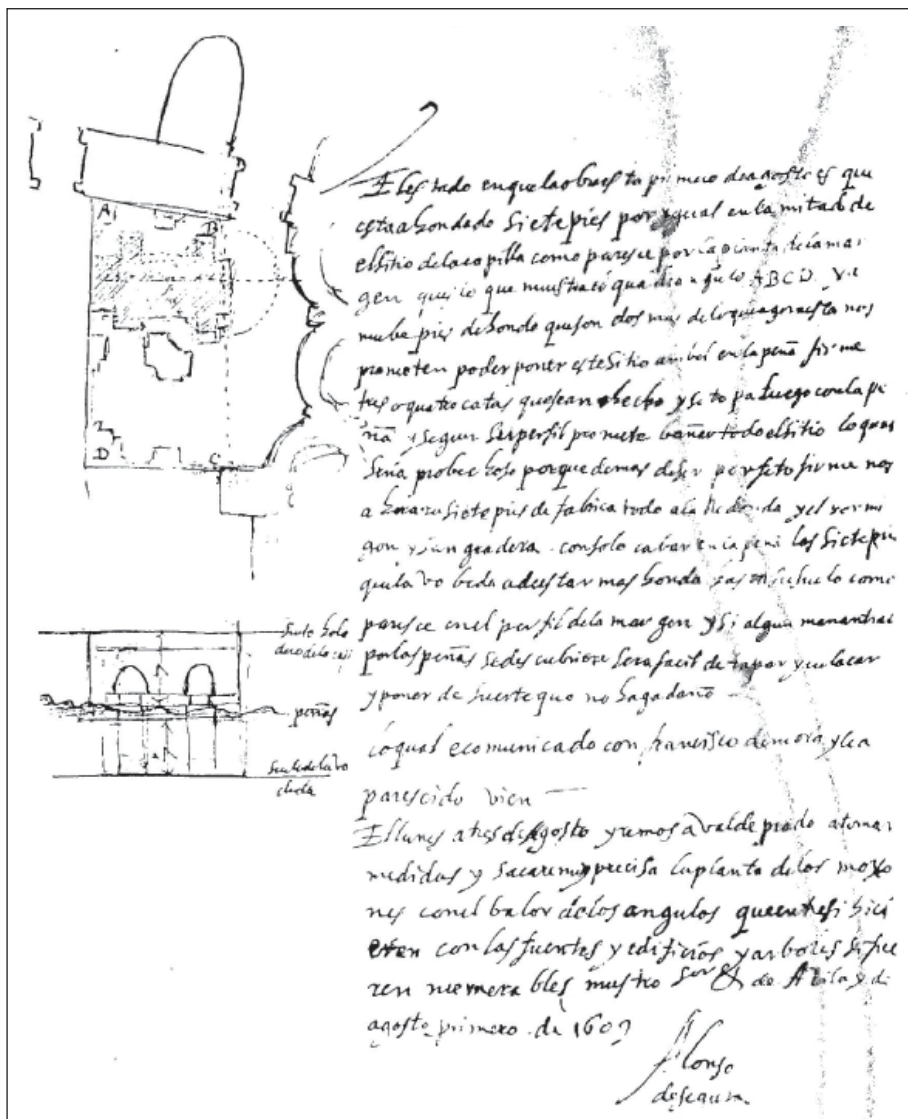 A
B
C
D
El estado en que la obra esta primero de agosto es que
esta ahondado siete pies por ygual en la mitad de
el sitio de la capilla como paresce por la planta de la mar
gen que lo que muestra el quadrangulo ABCD. y a
nuebe pies de hondo que son dos mas de lo que agora esta nos
prometen poder poner este sitio en la peña firme
tres o quatro catas que se an hecho y se topa luego con la pe
ña y segun su perfil promete bañar todo el sitio lo qual
seria probechoso porque demas de ser perfeto firme nos
ahorra siete pies de fabrica todo a la redonda y el hormi
gon con solo cabar en la peña los siete pies
que la bobeda a de estar mas honda como
paresce en el perfil de la margen y si algun manantial
por las peñas se descubriere sera facil de tapar
y poner de suerte que no haga daño
lo qual e comunicado con francisco de mora y le a
parescido vien
El lunes a tres de Agosto yremos a valdeprado a tomar
medidas y sacaremos precisa la planta de los moxo
nes con el balor de los angulos que entre si hici
eren con las fuentes y edificios y arboles si fue
ren memorables nuestro de Avila y di
agosto primero de 160
Alonso
de segura
suelo
peñas
suelo de la bo
beda